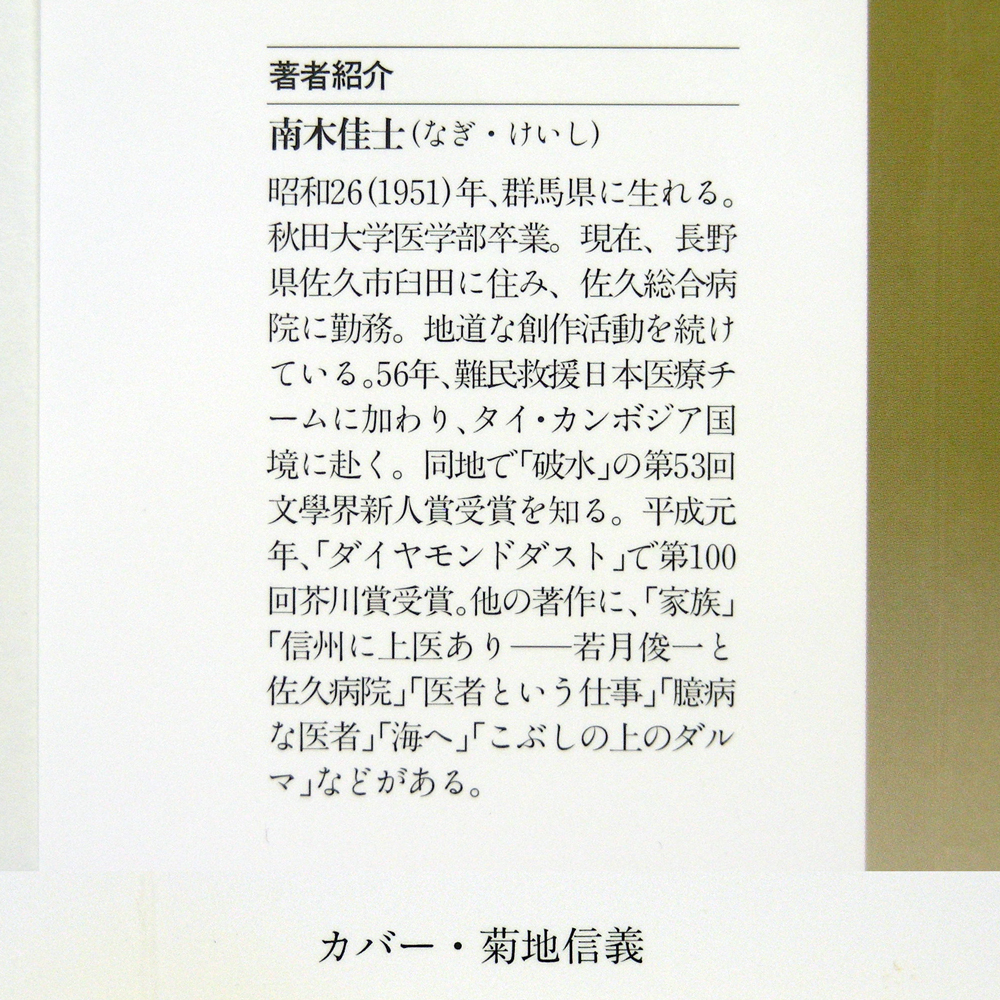 著者紹介
南木佳士(なぎ・けいし)
昭和26(1951)年、群馬県に生れる。
秋田大学医学部卒業。現在、長野
県佐久市臼田に住み、佐久総合病
院に勤務。地道な創作活動を続け
ている。56年、難民救援日本医療チ
ームに加わり、タイ・カンボジア国
境に赴く。同地で「破水」の第53回
文學界新人賞受賞を知る。平成元
年、「ダイヤモンドダスト」で第100
回芥川賞受賞。他の著作に、「家族」
「信州に上医あり――若月俊一と
佐久病院」「医者という仕事」「臆病
な医者」「海へ」「こぶしの上のダル
マ」などがある。
カバー・菊地信義